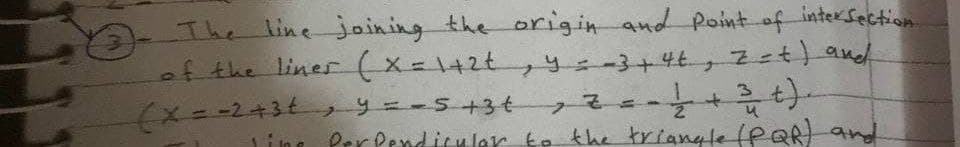 3 - The line joining the origin and point of intersection
of the lines (x = 1+2t , y = -3+4t , z = t) and
(x = -2+3t , y = -5+3t , z = -1/2 + 3/4 t).
line perpendicular to the triangle (PQR) and